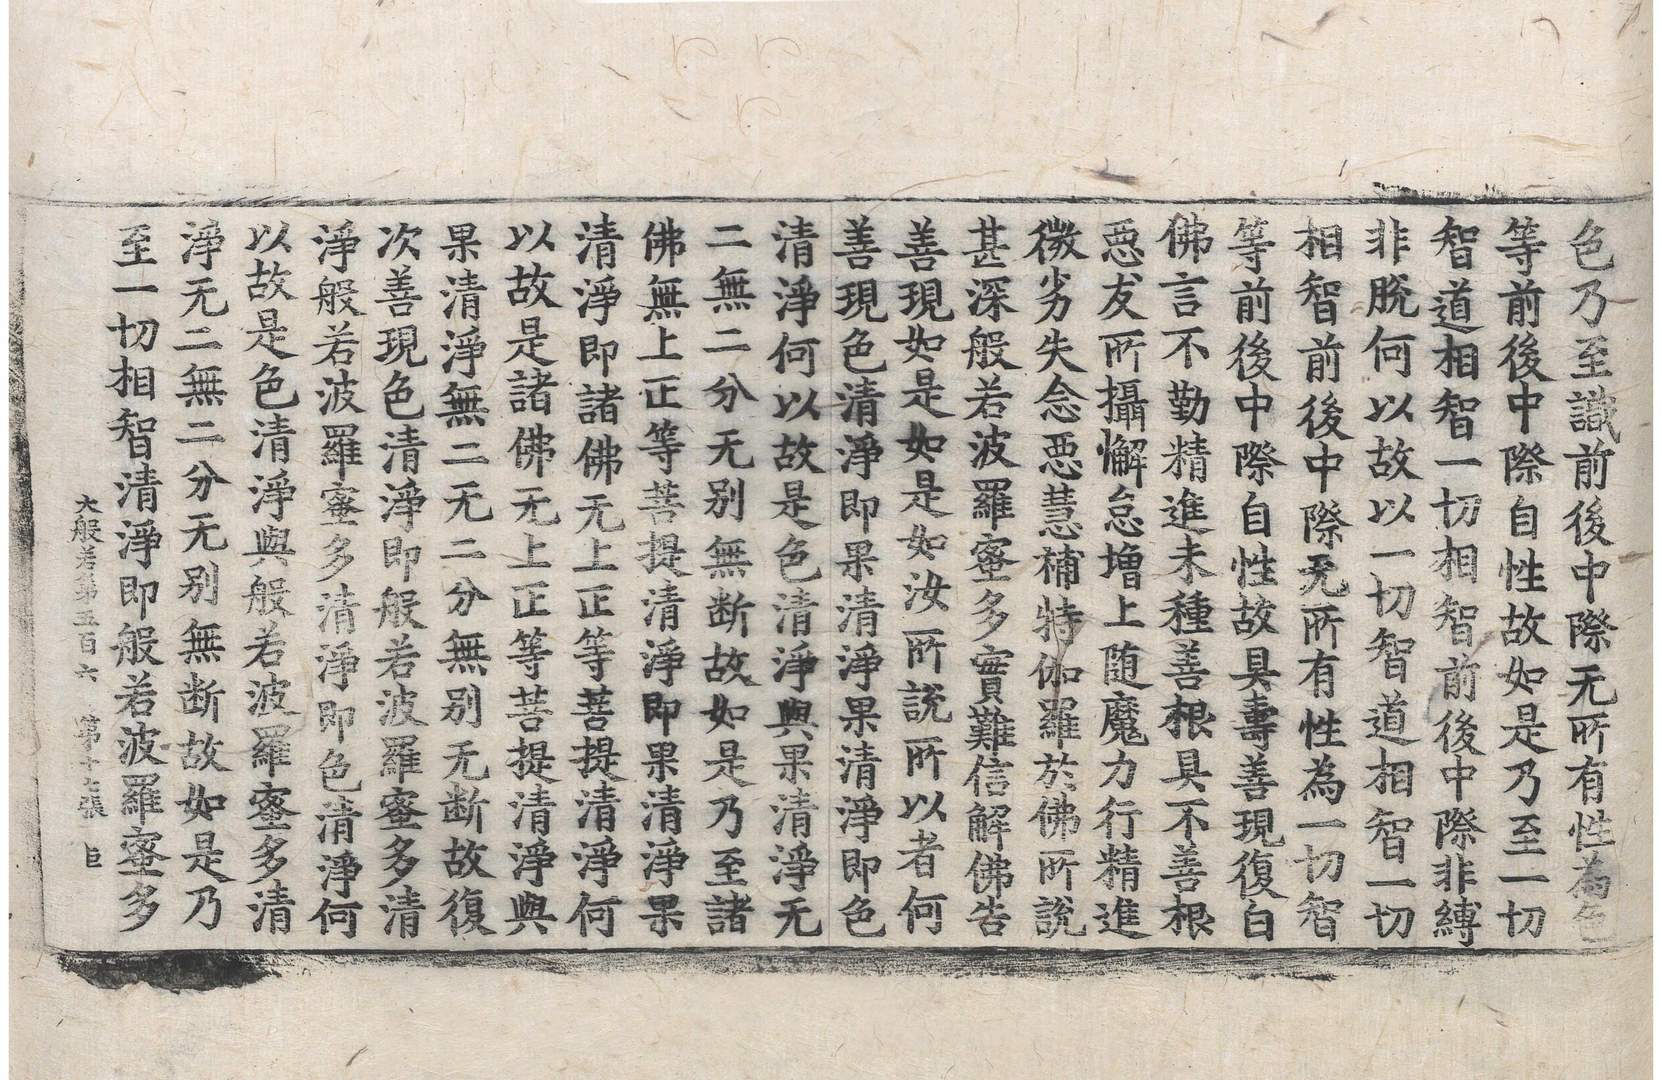 色乃至識前後中際无所有性為色
等前後中際自性故如是乃至一切
智道相智一切相智前後中際非縛
非脫何以故以一切智道相智一切
相智前後中際无所有性為一切智
等前後中際自性故具壽善現復白
佛言不勤精進未種善根具不善根
惡友所攝懈怠增上随魔力行精進
微劣失念惡慧補特伽羅於佛所說
甚深般若波羅蜜多實難信解佛告
善現如是如是如汝所說所以者何
善現色清淨即果清淨果清淨即色
清淨何以故是色清淨與果清淨无
二無二分无别無断故如是乃至諸
佛無上正等菩提清淨即果清淨果
清淨即諸佛无上正等菩提清淨何
以故是諸佛无上正等菩提清淨與
果清淨無二无二分無别无断故復
次善現色清淨即般若波羅蜜多清
淨般若波羅蜜多清淨即色清淨何
以故是色清淨與般若波羅蜜多清
淨无二無二分无别無断故如是乃
至一切相智清淨即般若波羅蜜多
大般若第五百六 第十七張 巨